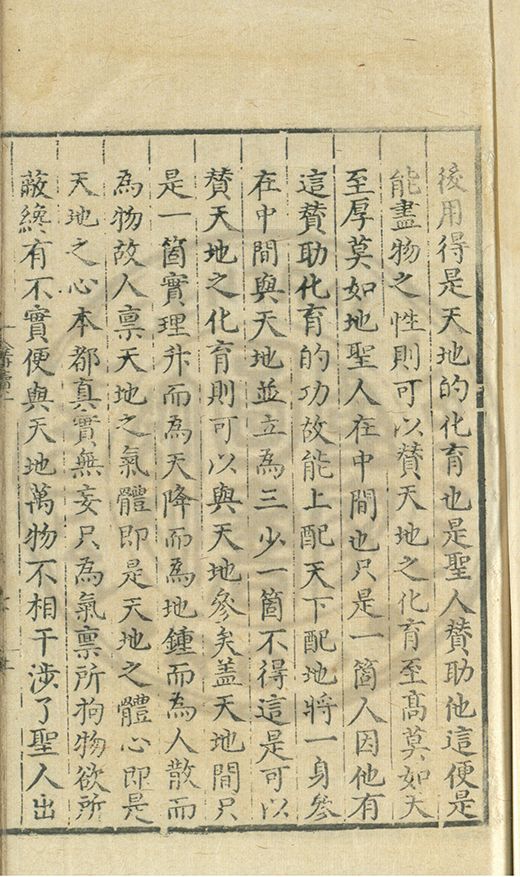 後用得是天地的化育也是聖人賛助他這便是
能盡物之性則可以賛天地之化育至髙莫如天
至厚莫如地聖人在中間也只是一箇人因他有
這賛助化育的功故能上配天下配地將一身參
在中間與天地並立為三少一箇不得這是可以
賛天地之化育則可以與天地參矣盖天地間只
是一箇實理升而為天降而為地鍾而為人散而
為物故人禀天地之氣體即是天地之體心即是
天地之心本都真實無妄只為氣禀所拘物欲所
蔽纔有不實便與天地萬物不相干涉了聖人出